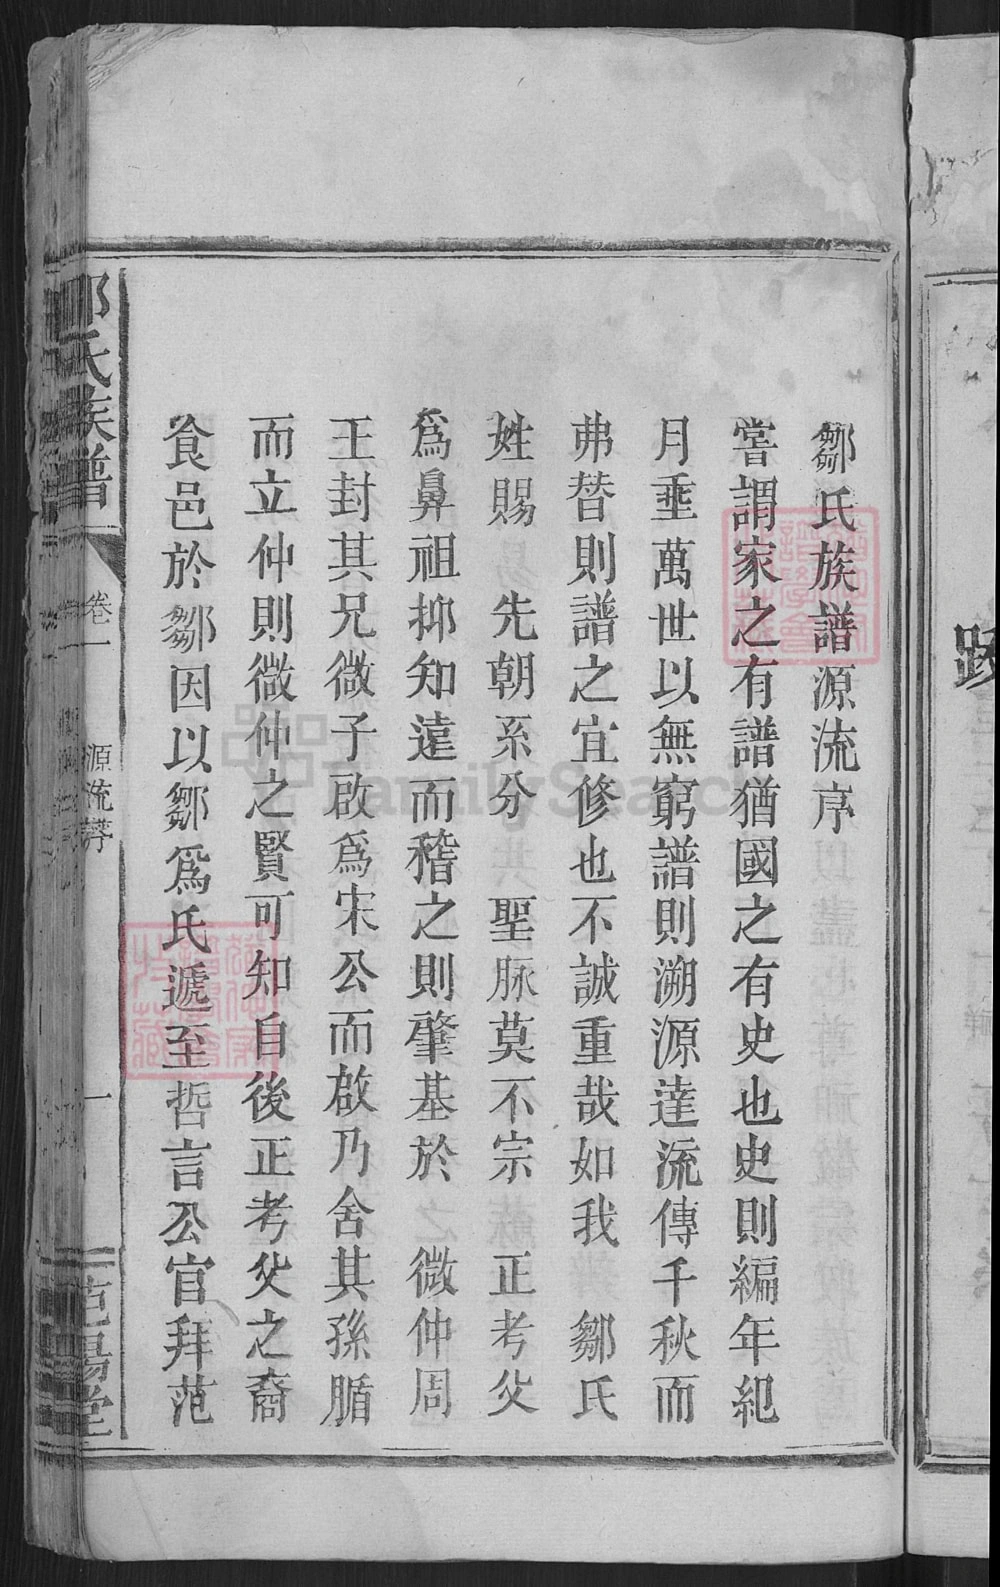 鄒氏族譜源流序
嘗謂家之有譜猶國之有史也史則編年紀
月垂萬世以無窮譜則溯源達流傳千秋而
弗替則譜之宜修也不誠重哉如我 鄒氏
姓賜易先朝系分 聖脉莫不宗 正考父
爲鼻祖抑知遠而稽之則肇基於 微仲周
王封其兄微子啟爲宋公而啟乃舍其孫腯
而立仲則微仲之賢可知自後正考父之裔
食邑於鄒因以鄒爲氏遞至哲言公官拜范
鄒氏族譜
卷一
源流序
一
范陽堂
FamilySearch